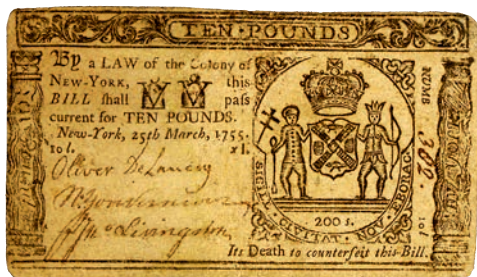 TEN·POUNDS
By a LAW of the Colony of
NEW-YORK, this
BILL shall pass
current for TEN POUNDS.
New-York, 25th March, 1755.
10 l. xl.
Oliver De Lancey
Livingston
NUMB
382.
10 l
SIGILL · CIVITAT · NOV · EBORAC ·
200 s.
Its Death to counterfeit this Bill.